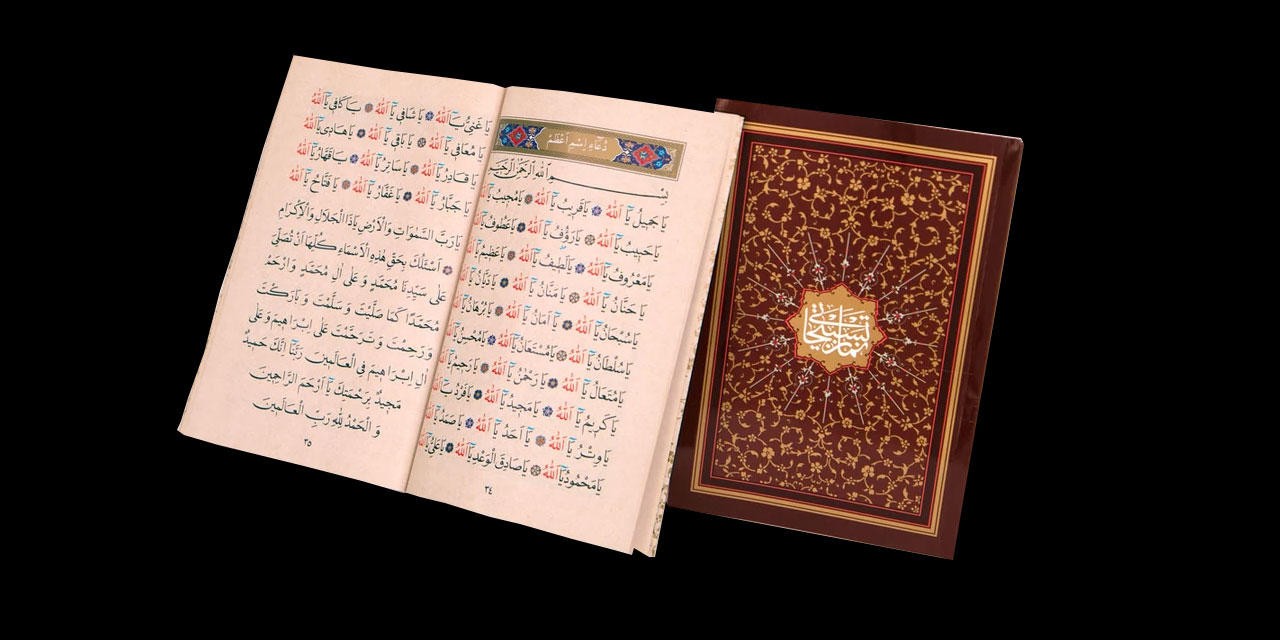 دُعَاءِ اِسْمِ اَعْظَمْ
بِسْمِ اللهِ الرَّحْمٰنِ الرَّحِيمِ
يَا جَمِيلُ يَا اَللهُ يَا قَرِيبُ يَا اَللهُ يَا مُجِيبُ يَا
يَا حَبِيبُ يَا اَللهُ يَا رَؤُفُ يَا اَللهُ يَا عَطُوفُ يَا
يَا مَعْرُوفُ يَا اَللهُ يَا لَطِيفُ يَا اَللهُ يَا عَظِيمُ يَا
يَا حَنَّانُ يَا اَللهُ يَا مَنَّانُ يَا اَللهُ يَا دَيَّانُ يَا
يَا سُبْحَانُ يَا اَللهُ يَا اَمَانُ يَا اَللهُ يَا بُرْهَانُ يَا
يَا سُلْطَانُ يَا اَللهُ يَا مُسْتَعَانُ يَا اَللهُ يَا مُحْسِنُ يَا
يَا مُتَعَالُ يَا اَللهُ يَا رَحْمٰنُ يَا اَللهُ يَا رَحِيمُ يَا
يَا كَرِيمُ يَا اَللهُ يَا مَجِيدُ يَا اَللهُ يَا فَرْدُ يَا
يَا وِتْرُ يَا اَللهُ يَا اَحَدُ يَا اَللهُ يَا صَمَدُ يَا
يَا مَحْمُودُ يَا اَللهُ يَا صَادِقَ الْوَعْدِ يَا اَللهُ يَا عَلِيُّ يَا
٢٤
يَا غَنِيُّ يَا اَللهُ يَا شَافِي يَا اَللهُ يَا كَافِي يَا اَللهُ
يَا مُعَافِي يَا اَللهُ يَا بَاقِي يَا اَللهُ يَا هَادِي يَا اَللهُ
يَا قَادِرُ يَا اَللهُ يَا سَاتِرُ يَا اَللهُ يَا قَهَّارُ يَا اَللهُ
يَا جَبَّارُ يَا اَللهُ يَا غَفَّارُ يَا اَللهُ يَا فَتَّاحُ يَا اَللهُ
يَا رَبَّ السَّمٰوَاتِ وَالْاَرْضِ يَا ذَا الْجَلَالِ وَالْاِكْرَامِ
اَسْئَلُكَ بِحَقِّ هٰذِهِ الْاَسْمَاءِ كُلِّهَا اَنْ تُصَلِّيَ
عَلٰى سَيِّدِنَا مُحَمَّدٍ وَ عَلٰى اٰلِ مُحَمَّدٍ وَارْحَمْ
مُحَمَّدًا كَمَا صَلَّيْتَ وَ سَلَّمْتَ وَ بَارَكْتَ
وَ رَحِمْتَ وَ تَرَحَّمْتَ عَلٰى اِبْرَاهِيمَ وَ عَلٰى
اٰلِ اِبْرَاهِيمَ فِي الْعَالَمِينَ رَبَّنَا اِنَّكَ حَمِيدٌ
مَجِيدٌ بِرَحْمَتِكَ يَا اَرْحَمَ الرَّاحِمِينَ
وَ الْحَمْدُ لِلهِ رَبِّ الْعَالَمِينَ
٢٥